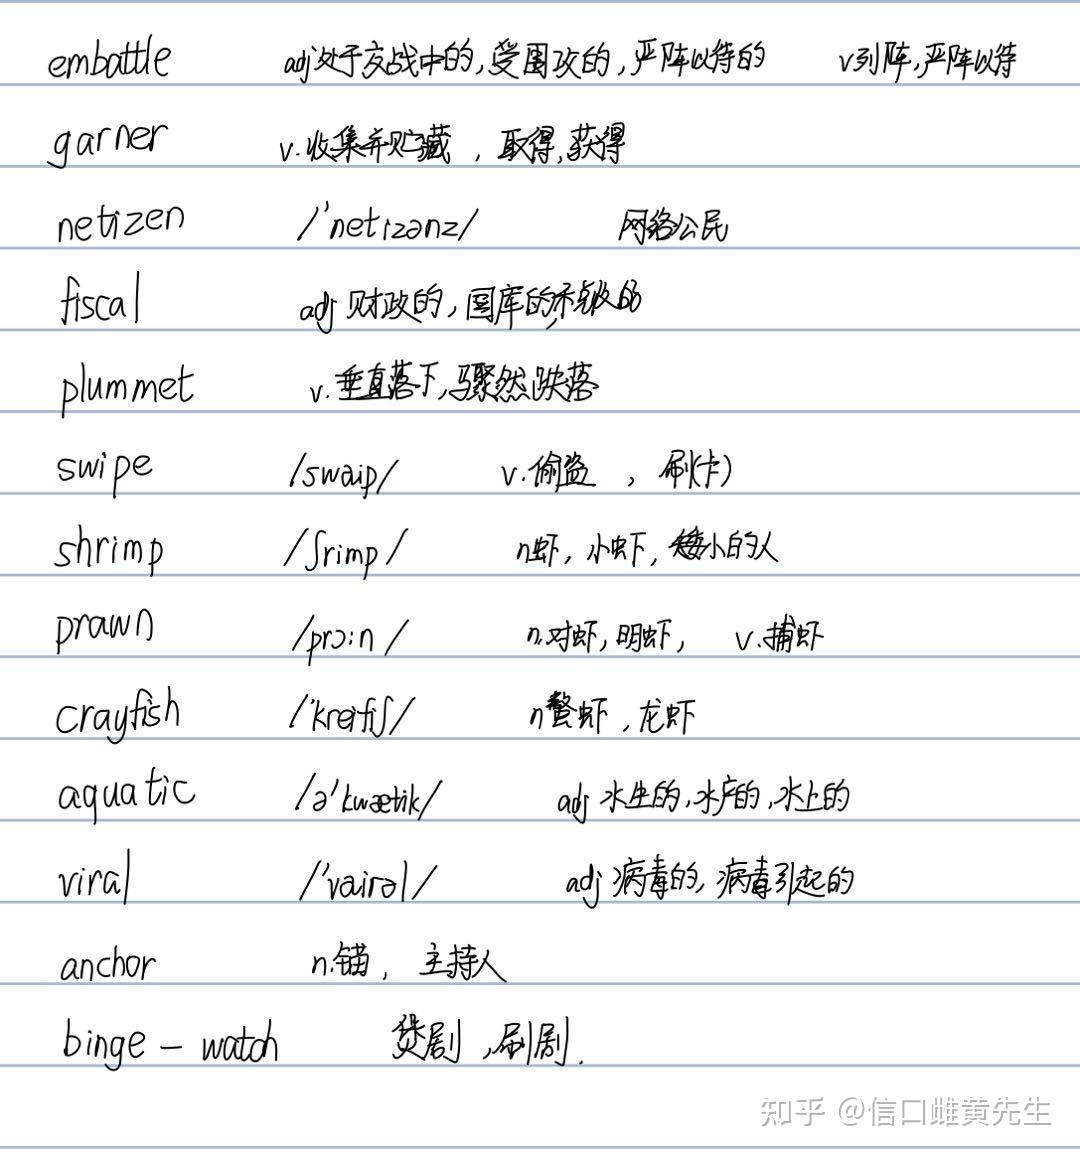 embattle adj处于交战中的,受围攻的,严阵以待的 v列阵,严阵以待
garner v.收集并贮藏 , 取得,获得
netizen /'netɪzənz/ 网络公民
fiscal adj 财政的,国库的,
plummet v.垂直落下,骤然跌落
swipe /swaip/ v.偷盗 , 刷(卡)
shrimp /ʃrimp/ n虾, 小虾, 矮小的人
prawn /prɔ:n/ n.对虾,明虾, v.捕虾
crayfish /'kreifiʃ/ n螯虾,龙虾
aquatic /ə'kwætik/ adj 水生的,水产的,水上的
viral /'vairəl/ adj 病毒的,病毒引起的
anchor n.锚, 主持人
binge - watch 煲剧,刷剧.
知乎 @信口雌黄先生